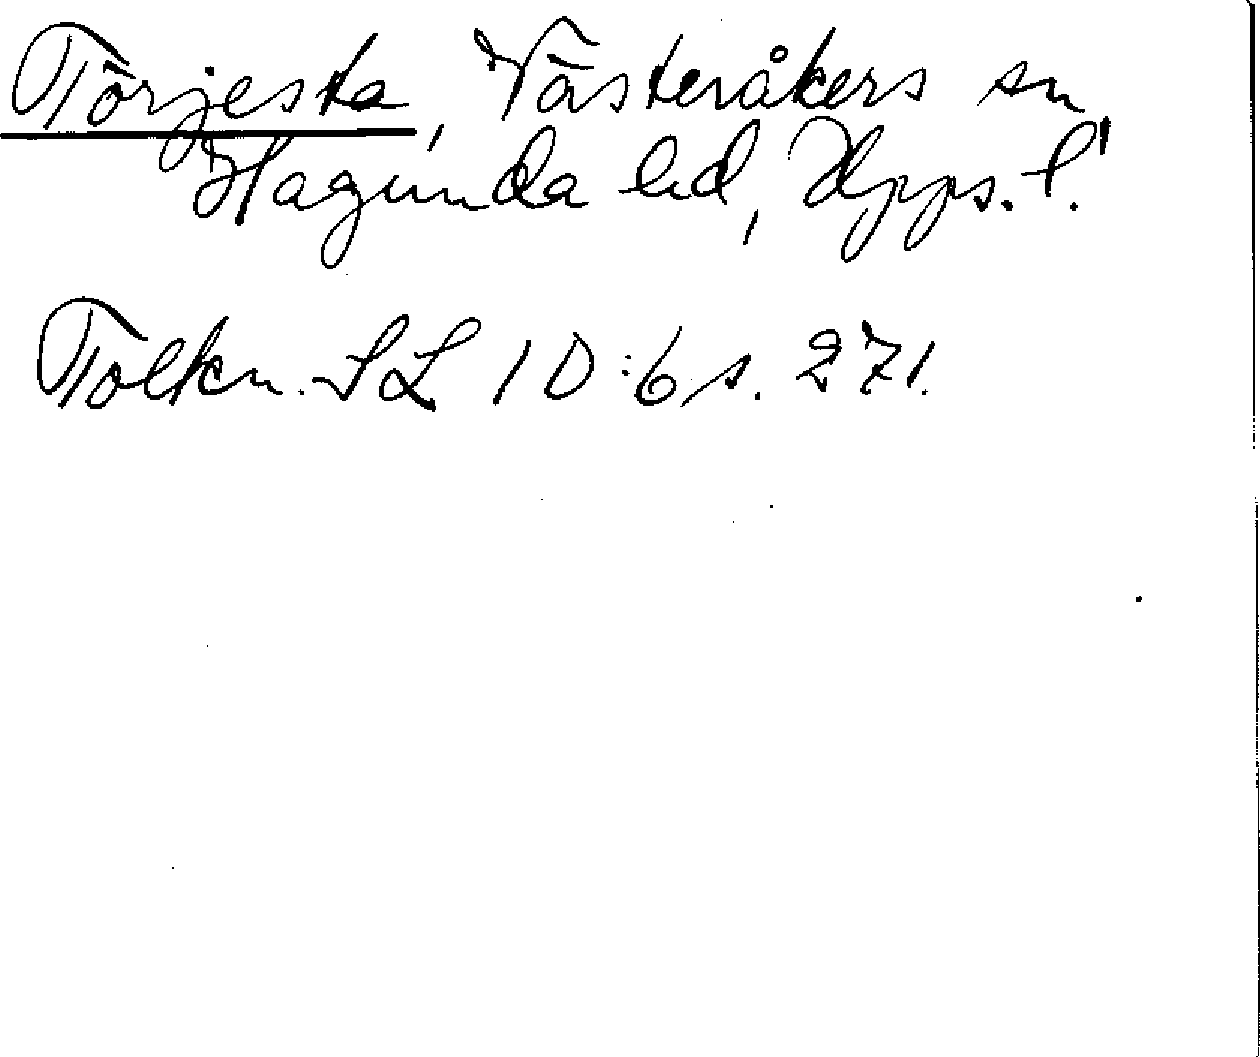 Törjesta, Västeråkers sn
Hagunda hd, Upps. l.
Tolkn. SL 1 D:6 s. 271.